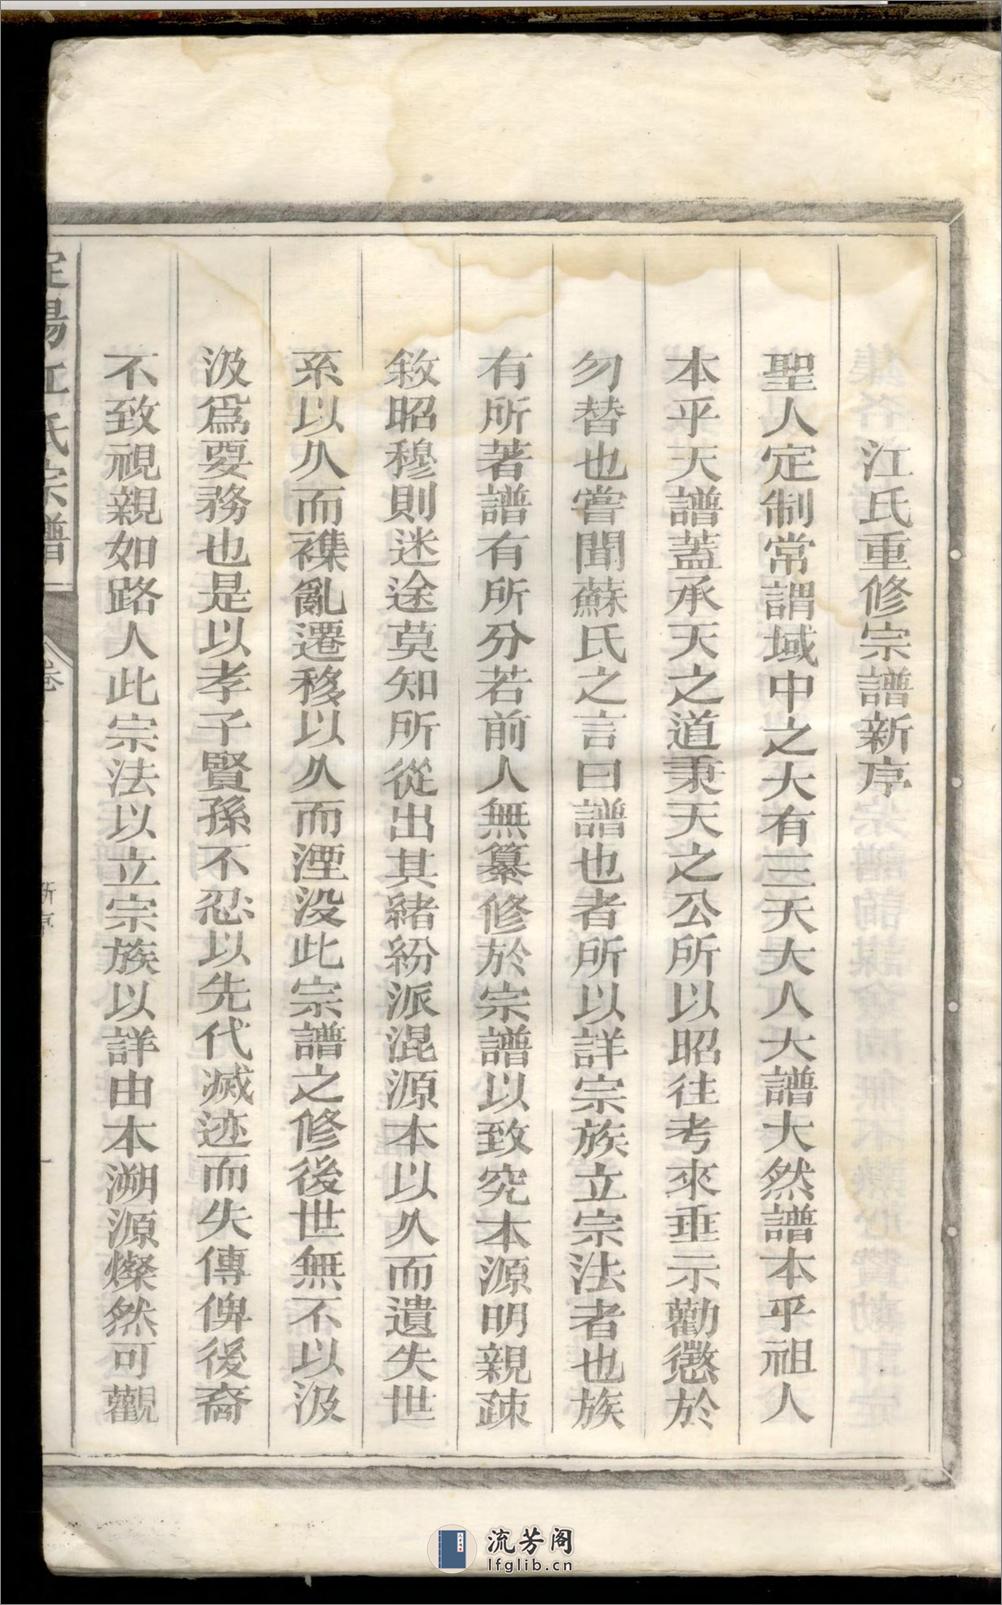 江氏重修宗譜新序
聖人定制常謂域中之大有三天大人大譜大然譜本乎祖人
本乎天譜蓋承天之道秉天之公所以昭往考來垂示勸懲於
勿替也嘗聞蘇氏之言曰譜也者所以詳宗族立宗法者也族
有所著譜有所分若前人無纂修於宗譜以致究本源明親疎
敘昭穆則迷途莫知所從出其緒紛派混源本以久而遺失世
系以久而襍亂遷移以久而湮没此宗譜之修後世無不以汲
汲爲要務也是以孝子賢孫不忍以先代滅迹而失傳俾後裔
不致視親如路人此宗法以立宗族以詳由本溯源燦然可觀
定陽江氏宗譜
卷
新序
一
流芳阁
lfglib.cn